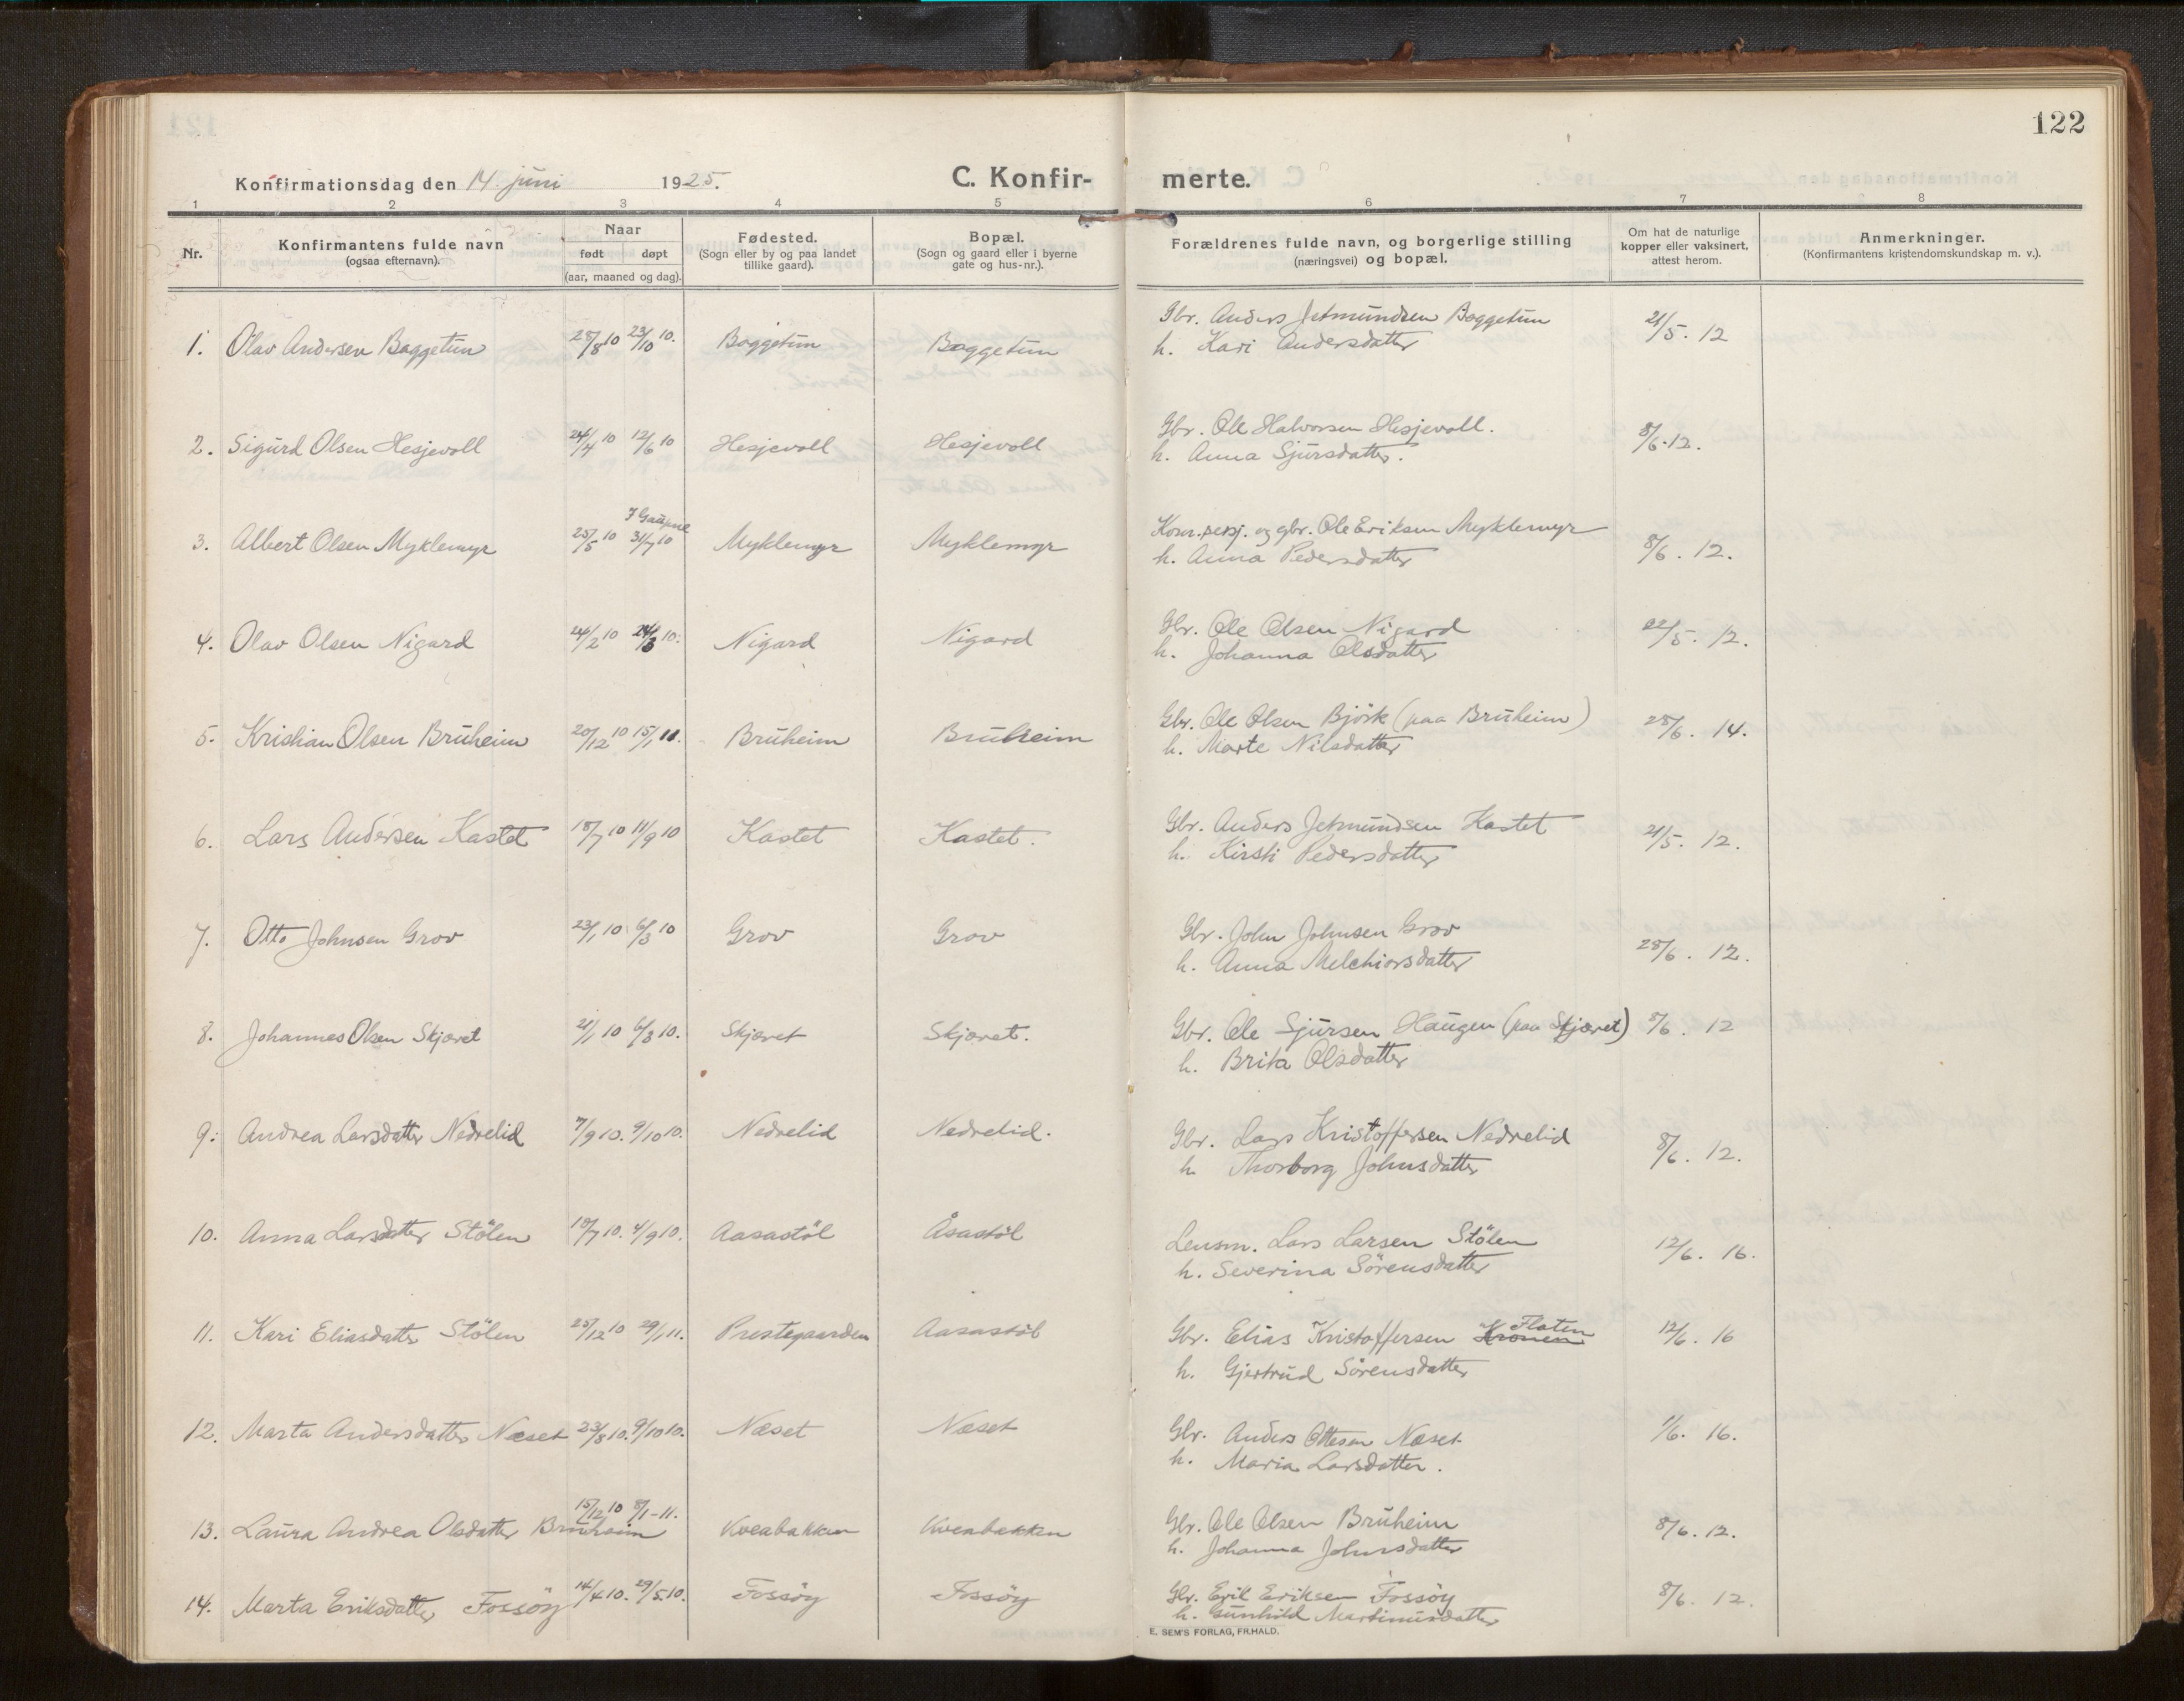 122
Konfirmationsdag den 14. juni 1925. C. Konfir- merte.
1 2 3 4 5 6 7 8
Nr.
Konfirmantens fulde navn
(ogsaa efternavn).
Naar
født døpt
(aar, maaned og dag).
Fødested.
(Sogn eller by og paa landet
tillike gaard).
Bopæl.
(Sogn og gaard eller i byerne
gate og hus-nr.).
Forældrenes fulde navn, og borgerlige stilling
(næringsvei) og bopæl.
Om hat de naturlige
kopper eller vaksinert,
attest herom.
Anmerkninger.
(Konfirmantens kristendomskundskap m. v.).
1. Olav Andersen Baggetun 28/8 10 23/10 10. Baggetun Baggetun
Gbr. Anders Jetmundsen Baggetun 21/5. 12
h. Kari Andersdatter
2. Sigurd Olsen Hesjevoll 24/4 10 12/6 10 Hesjevoll Hesjevoll
Gbr. Ole Halvorsen Hesjevoll. 8/6. 12.
h. Anna Sjursdatter.
I Gaupne
3. Albert Olsen Myklemyr 25/5 10 31/7 10 Myklemyr Myklemyr
gbr. Ole Eriksen Myklemyr 8/6. 12.
h. Anna Pedersdatter
4. Olav Olsen Nigard 24/2 10 24/3 10. Nigard Nigard
Gbr. Ole Olsen Nigard 22/5. 12.
h. Johanna Olsdatter
5. Kristian Olsen Bruheim 20/12 10 15/1 11. Bruheim Bruheim
Gbr. Ole Olsen Björk (paa Bruheim) 28/6. 14.
h. Marte Nilsdatter
6. Lars Andersen Kastet 18/7 10 11/9 10 Kastet Kastet.
Gbr. Anders Jetmundsen Kastet 21/5. 12.
h. Kirsti Pedersdatter
7. Otto Johnsen Grov 23/1 10 6/3 10 Grov Grov
Gbr. John Johnsen Grov 28/6. 12.
h. Anna Melchiorsdatter
8. Johannes Olsen Skjæret 21/1 10 6/3 10. Skjæret Skjæret.
Gbr. Ole Sjursen Haugen (paa Skjæret) 8/6. 12
h. Brita Olsdatter
9. Andrea Larsdatter Nedrelid 7/9 10. 9/10 10. Nedrelid Nedrelid.
Gbr. Lars Kristoffersen Nedrelid 8/6. 12.
h Thorborg Johnsdatter
10. Anna Larsdatter Stölen 18/7 10. 4/9 10. Aasastöl Åsastöl
Lensm. Lars Larsen Stölen 12/6. 16.
h. Severina Sörensdatter
11. Kari Eliasdatter Stölen 25/12 10 29/1 11. Prestegaarden Aasastöl
Gbr. Elias Kristoffersen Kronen Flaten 12/6. 16
h. Gjertrud Sörensdatter
12. Marta Andersdatter Næset 23/8 10. 9/10 10. Næset Næset
Gbr. Anders Ottesen Næset 1/6. 16.
h. Maria Larsdatter.
13. Laura Andrea Olsdatter Bruheim 15/12 10 8/1-11. Kveabakken Kveabakken
Gbr. Ole Olsen Bruheim 8/6. 12.
h. Johanna Johnsdatter
14. Marta Eriksdatter Fossöy 14/4 10. 29/5. 10. Fossöy Fossöy
Gbr. Erik Eriksen Fossöy 8/6. 12.
h. Gunhild Martinusdatter
E. SEM'S FORLAG, FR.HALD.